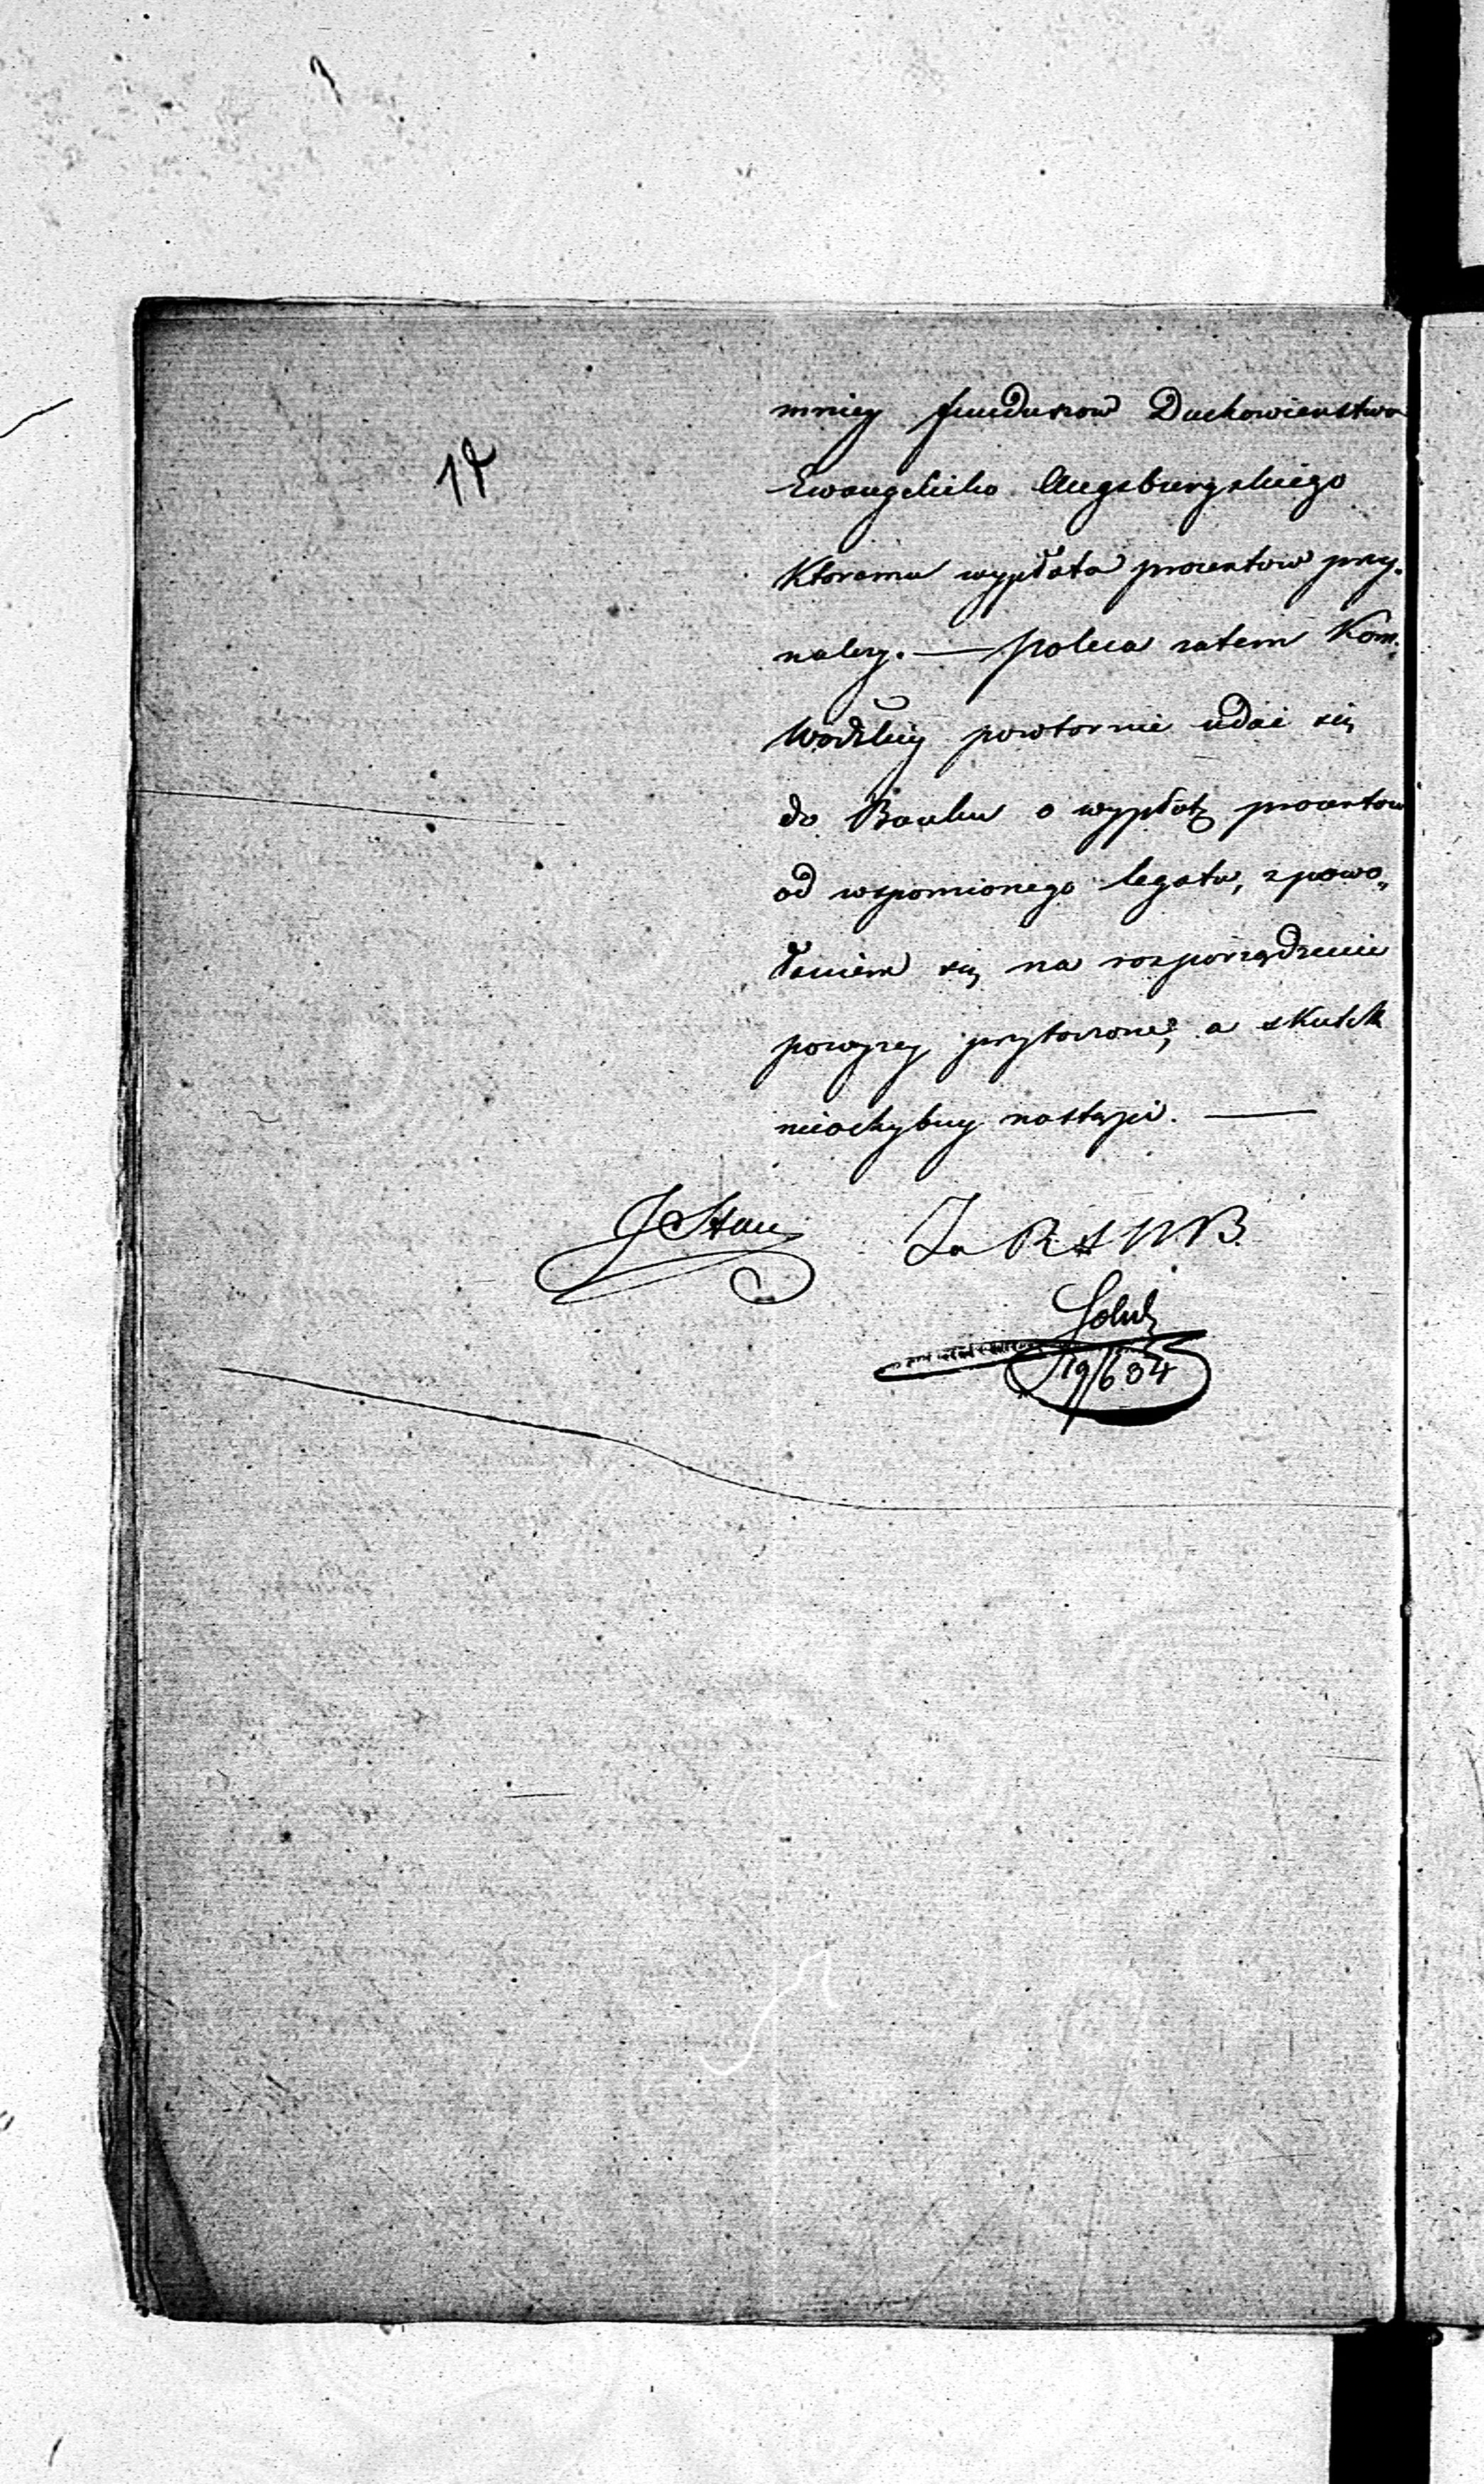 mniey funduszow Duchowienstwa
Ewangelicko Augsburgskiego
ktoremu wypłata procentow przy-
nalezy. — poleca zatem Kom:
Wodzkiey powtornie udać się
do Banku o wypłatę procentow
od wspomionego legatu, z powo-
łaniem się na rozporządzenie
powyzey przytoczone, a skutek
niechybny nastąpi. —
Za
19/6 34